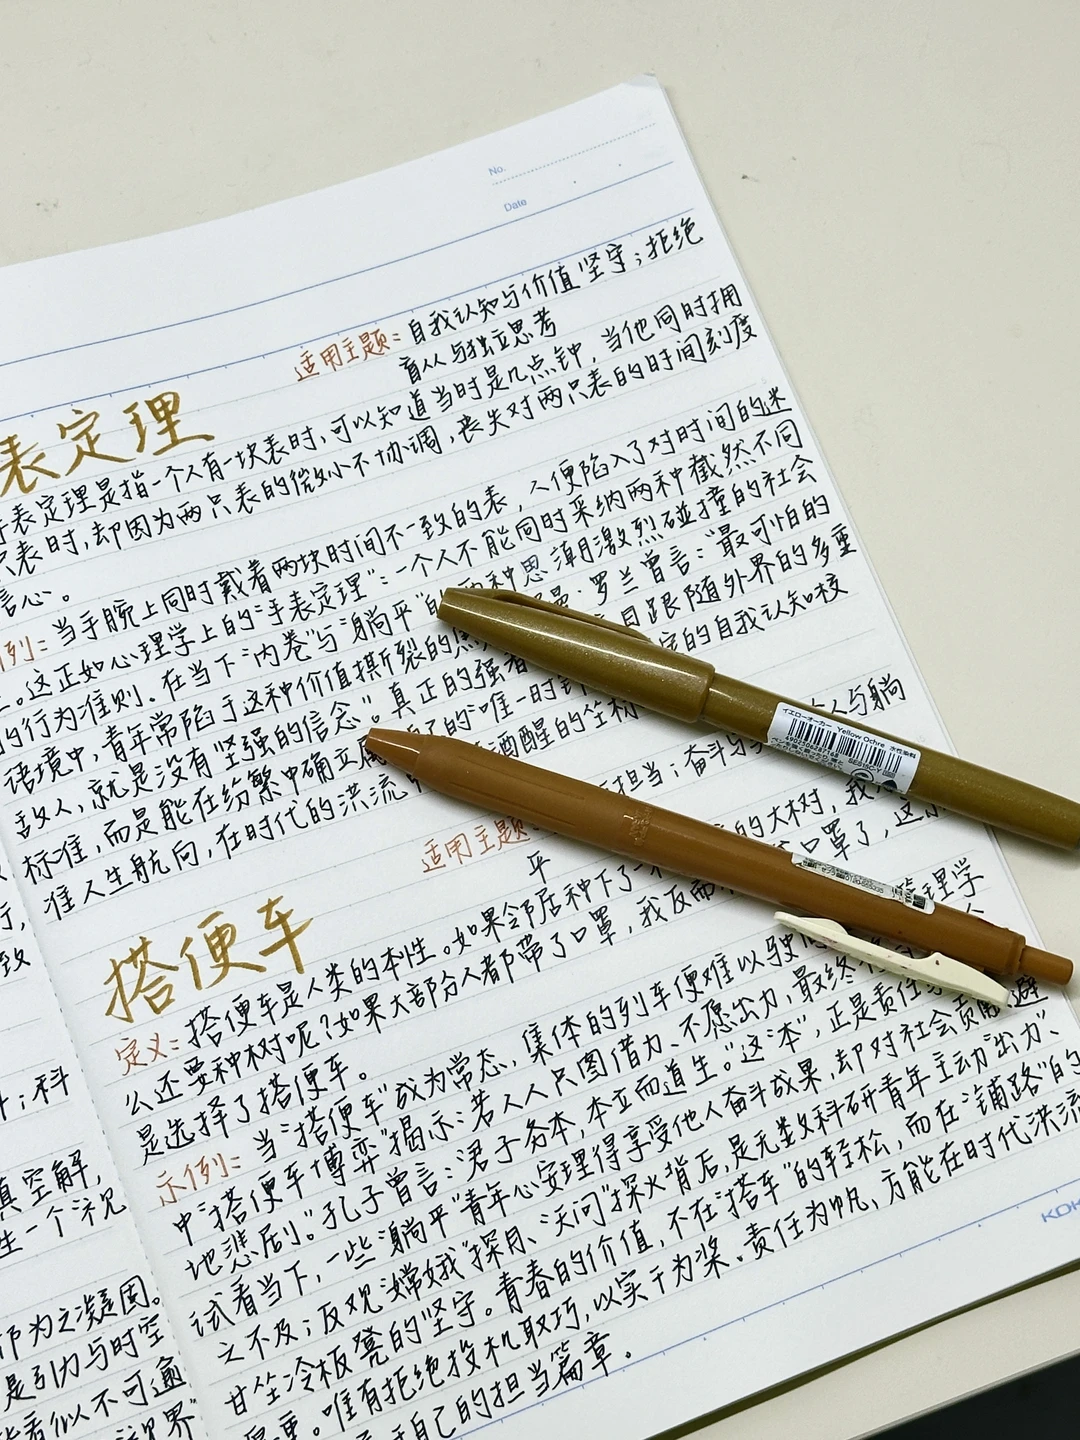 No.
Date
适用主题：自我认知与价值坚守；拒绝
盲从与独立思考
表定理
表定理是指一个人有一块表时，可以知道当时是几点钟，当他同时拥
只表时，却因为两只表的微小不协调，丧失对两只表的时间刻度
信心。
例：当手腕上同时戴着两块时间不一致的表，人便陷入了对时间的迷
。这正如心理学上的“手表定理”：一个人不能同时采纳两种截然不同
的行为准则。在当下“内卷”与“躺平”的两种思潮激烈碰撞的社会
语境中，青年常陷于这种价值撕裂的 罗兰曾言：“最可怕的
敌人，就是没有坚强的信念”。真正的强者 目跟随外界的多重
标准，而是能在纷繁中确立属 自己的唯一时 的自我认知校
准人生航向，在时代的洪流 清醒的坐标
适用主题 担当；奋斗与 人与躺
平
搭便车
定义：搭便车是人类的本性。如果邻居种下了 的大树，我
么还要种树呢？如果大部分人都带了口罩，我反而 口罩了，这
是选择了搭便车。
示例：当“搭便车”成为常态，集体的列车便难以驶 管理学
中“搭便车博弈”揭示：若人人只图借力、不愿出力，最终
地悲剧。”孔子曾言：“君子务本，本立而道生。”这“本”，正是责任
试看当下，一些“躺平”青年心安理得享受他人奋斗成果，却对社会责 避
之不及；反观“嫦娥”探月、“天问”探火背后，是无数科研青年主动“出力”、
甘坐冷板凳的坚守。青春的价值，不在“搭车”的轻松，而在“铺路”的
厚重。唯有拒绝投机取巧，以实干为桨、责任为帆，方能在时代洪流
自己的担当篇章。
行，
致
；科
真空解，
生一个视
即为之凝固。
是引力与时空
看似不可逾
视界”
イエローオーカー Yellow Ochre 水性染料